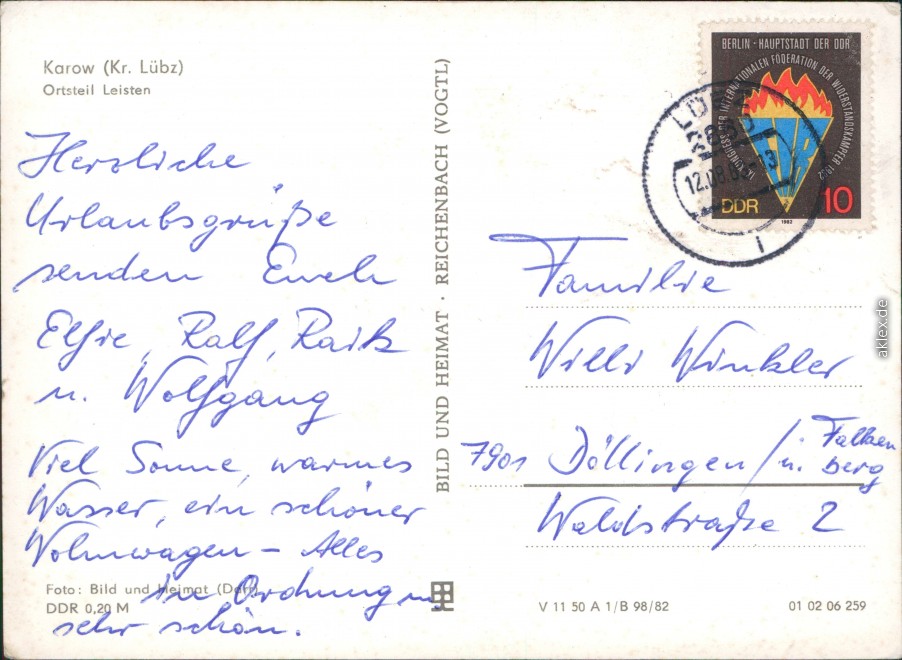 Karow (Kr. Lübz)
Ortsteil Leisten
Herzliche
Urlaubsgrüße
senden Euch
Elfie, Ralf, Raik
u. Wolfgang
Viel Sonne, warmes
Wasser, ein schöner
Wohnwagen – Alles
in Ordnung u.
sehr schön.
Foto: Bild und Heimat
DDR 0,20 M
BILD UND HEIMAT · REICHENBACH (VOGTL)
BERLIN - HAUPTSTADT DER DDR
KONGRESS DER INTERNATIONALEN FÖDERATION DER WIDERSTANDSKÄMPFER 1982
FIR
DDR
10
1982
12.08.
Familie
Willi Winkler
7901 Döllingen / ü. Falken
berg
Waldstraße 2
V 11 50 A 1/B 98/82
01 02 06 259
aklex.de